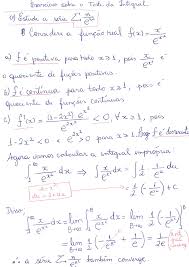 Exercícios sobre o Teste da Integral
1) Estude a série ∑ n/e^{n²}
Considere a função real f(x) = x/e^{x²}
a) f é positiva para todo x≥1, pois x/e^{x²} é
quociente de funções positivas.
b) f é contínua para todo x≥1, pois é
quociente de funções contínuas.
c) f'(x) = (1-2x²)e^{x²}/(e^{x²})² < 0, ∀ x≥1, pois
1-2x² < 0 e e^{x²} > 0 para x≥1, logo f é decrescente
Agora vamos calcular a integral imprópria
∫ x/e^{x²} dx ⇒ ∫ x/e^{x²} dx = ∫ 1/2 · 1/e^u du
u = x²
du = 2x dx
= -1/2 (1/e^{x²}) + C
Disso,
∫ x/e^{x²} dx = lim ∫ x/e^{x²} dx = lim 1/2 (-1/e^{x²})
= lim 1/2 (-1/e^{B²} + 1/e) = 1/2e
∴ a série ∑ n/e^{n²} também converge.